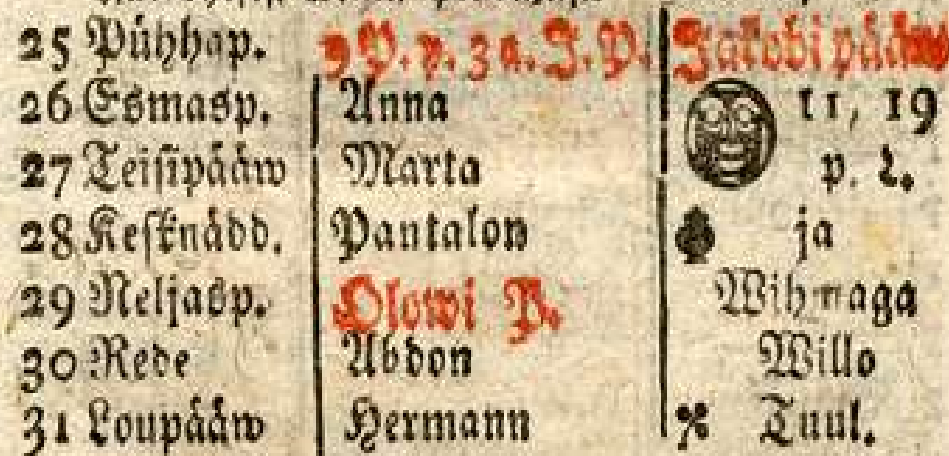 25 Pühhap. 9 P. p. 3 a. J. P. Jakobi pääw
26 Esmasp. Anna 11, 19
27 Teisipääw Marta p. L.
28 Kesknädd. Pantalon ja
29 Neljasp. Olowi P. Wihmaga
30 Rede Abdon Willo
31 Loupääw Hermann Tuul.